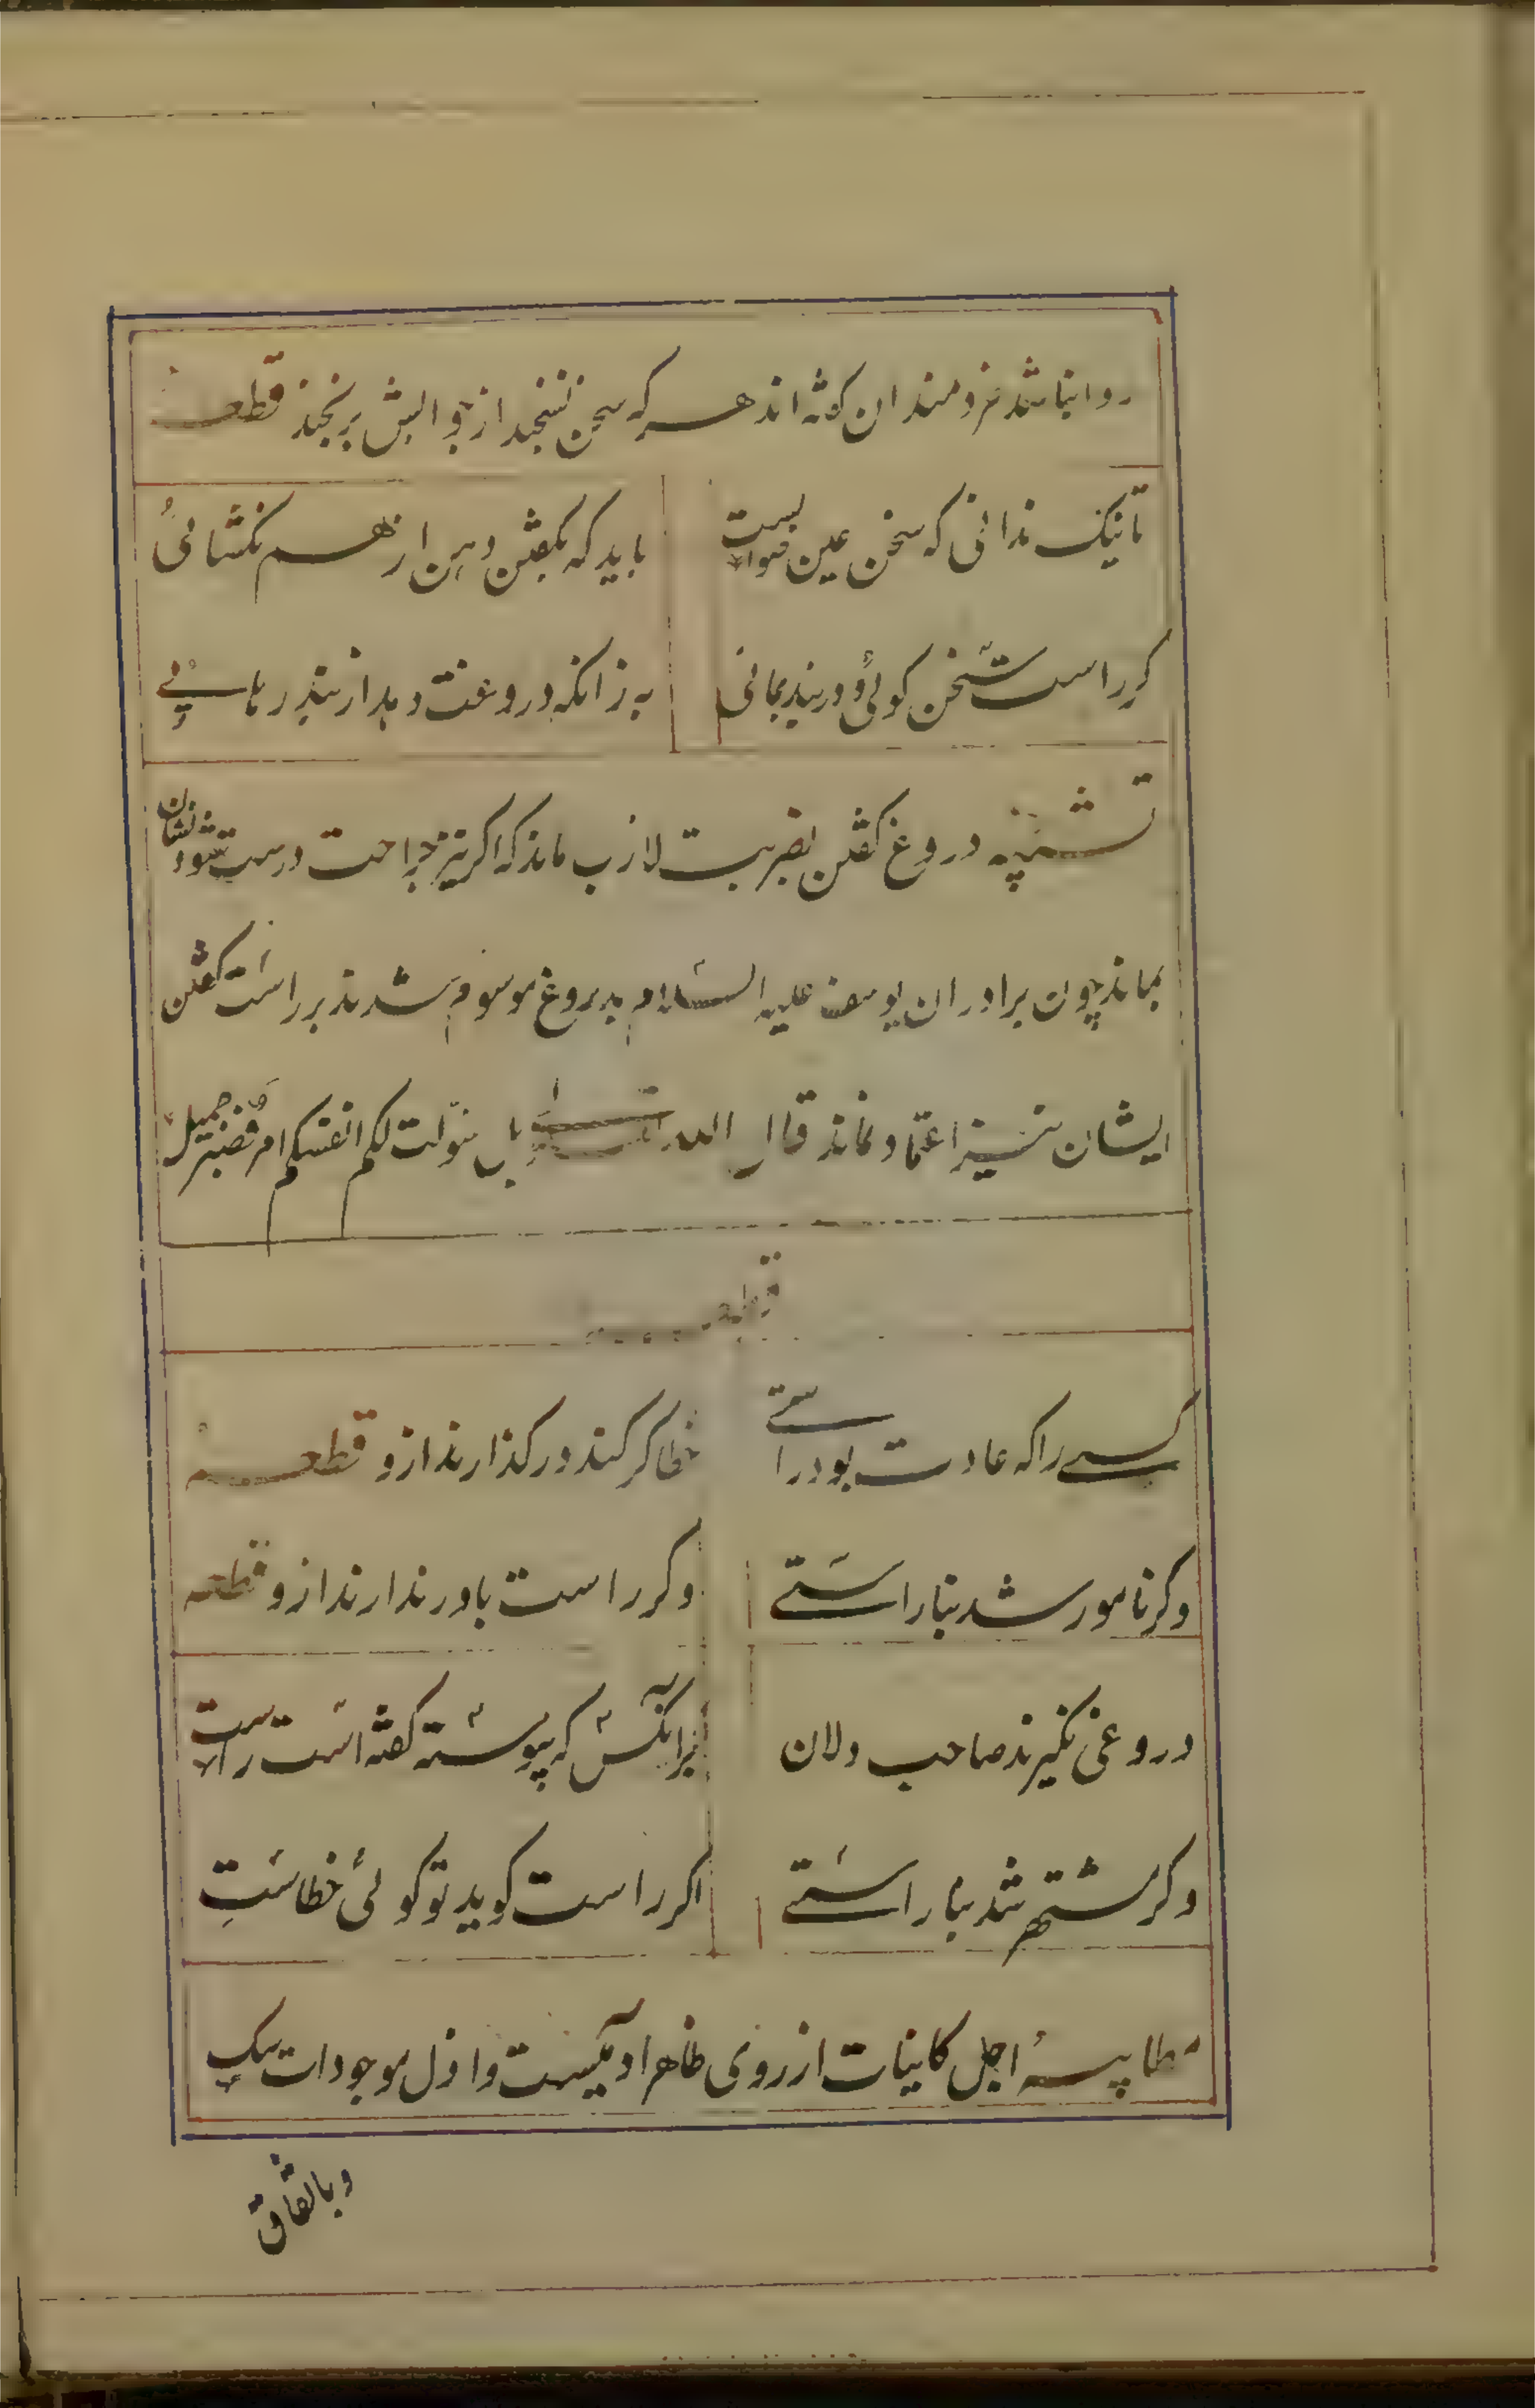 روا نباشد خردمندان گفته اند هر که سخن نسنجد از جوابش برنجد قطعه
تا نیک ندانی که سخن عین صوابست باید که بگفتن دهن از هم نکشائی
کر راست سخن کوئی و در بند بمانی به زانکه دروغت دهد از بند رهائی
تنبیه دروغ کفتن بضربت لازب ماند که اکر نیز جراحت درست شود نشان
بماند چون برادران یوسف علیه السلام بدروغ موسوم شدند بر راست کفتن
ایشان نیز اعتماد نماند قال الله تعالی بل سوّلت لکم انفسکم امر فصبر جمیل
قطعه
کسے را که عادت بود راستے خطا کر کند در کذارند ازو قطعه
وکر نامور شد بناراستے وکر راست باور ندارند ازو قطعه
دروغی نکیرند صاحب دلان برآنکس که پیوسته کفته است راست
وکر مشتهر شد بناراستے اکر راست کوید تو کوئی خطاست
مطایبه اجل کاینات از روی ظاهر ادمیست و اذل موجودات سک
و باتفاق